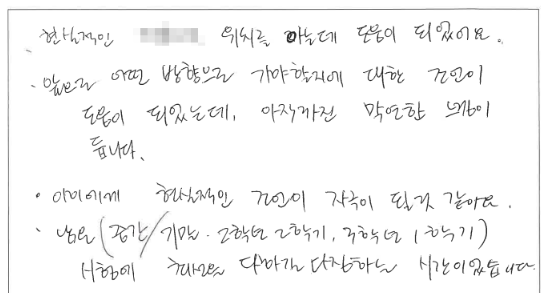 · 현실적인 위치를 아는데 도움이 되었어요.
· 앞으로 어떤 방향으로 가야할지에 대한 조언이
도움이 되었는데, 아직까진 막연한 느낌이
듭니다.
· 아이에게 현실적인 조언이 자극이 될것 같아요.
· 남은 (중간/기말. 2학년 2학기, 3학년 1학기)
시험에 최선을 다짐하는 시간이었습니다.